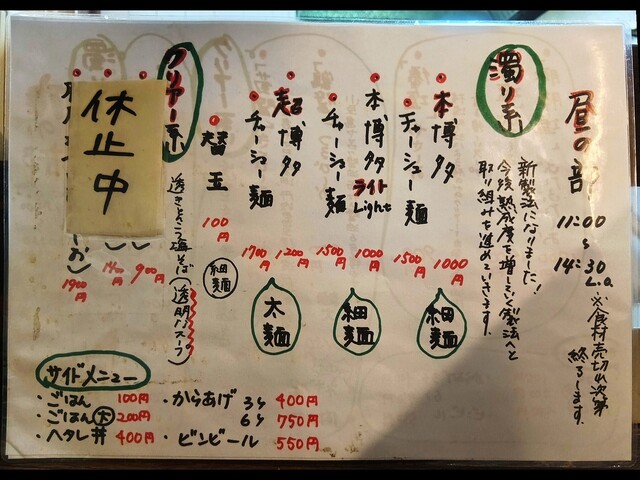 昼の部
11:00
〜
14:30
L.o.
※食材売切れ次第
終了します。
濁り系
新製法になりました！
今後熟成度を増していく製法へと
取り組みを進めていきます。
本博多
1000円
チャーシュー麺
1500円
細麺
本博多
ライト
Light
1000円
チャーシュー麺
1500円
細麺
超博多
1200円
チャーシュー麺
1700円
太麺
替玉
100円
細麺
クリアー系
透きとんこつ海そば(透明なスープ)
900円
1400円
1900円
休止中
サイドメニュー
・ごはん 100円
・ごはん大 200円
・ヘタレ丼 400円
・からあげ 3ヶ 400円
6ヶ 750円
・ビンビール 550円